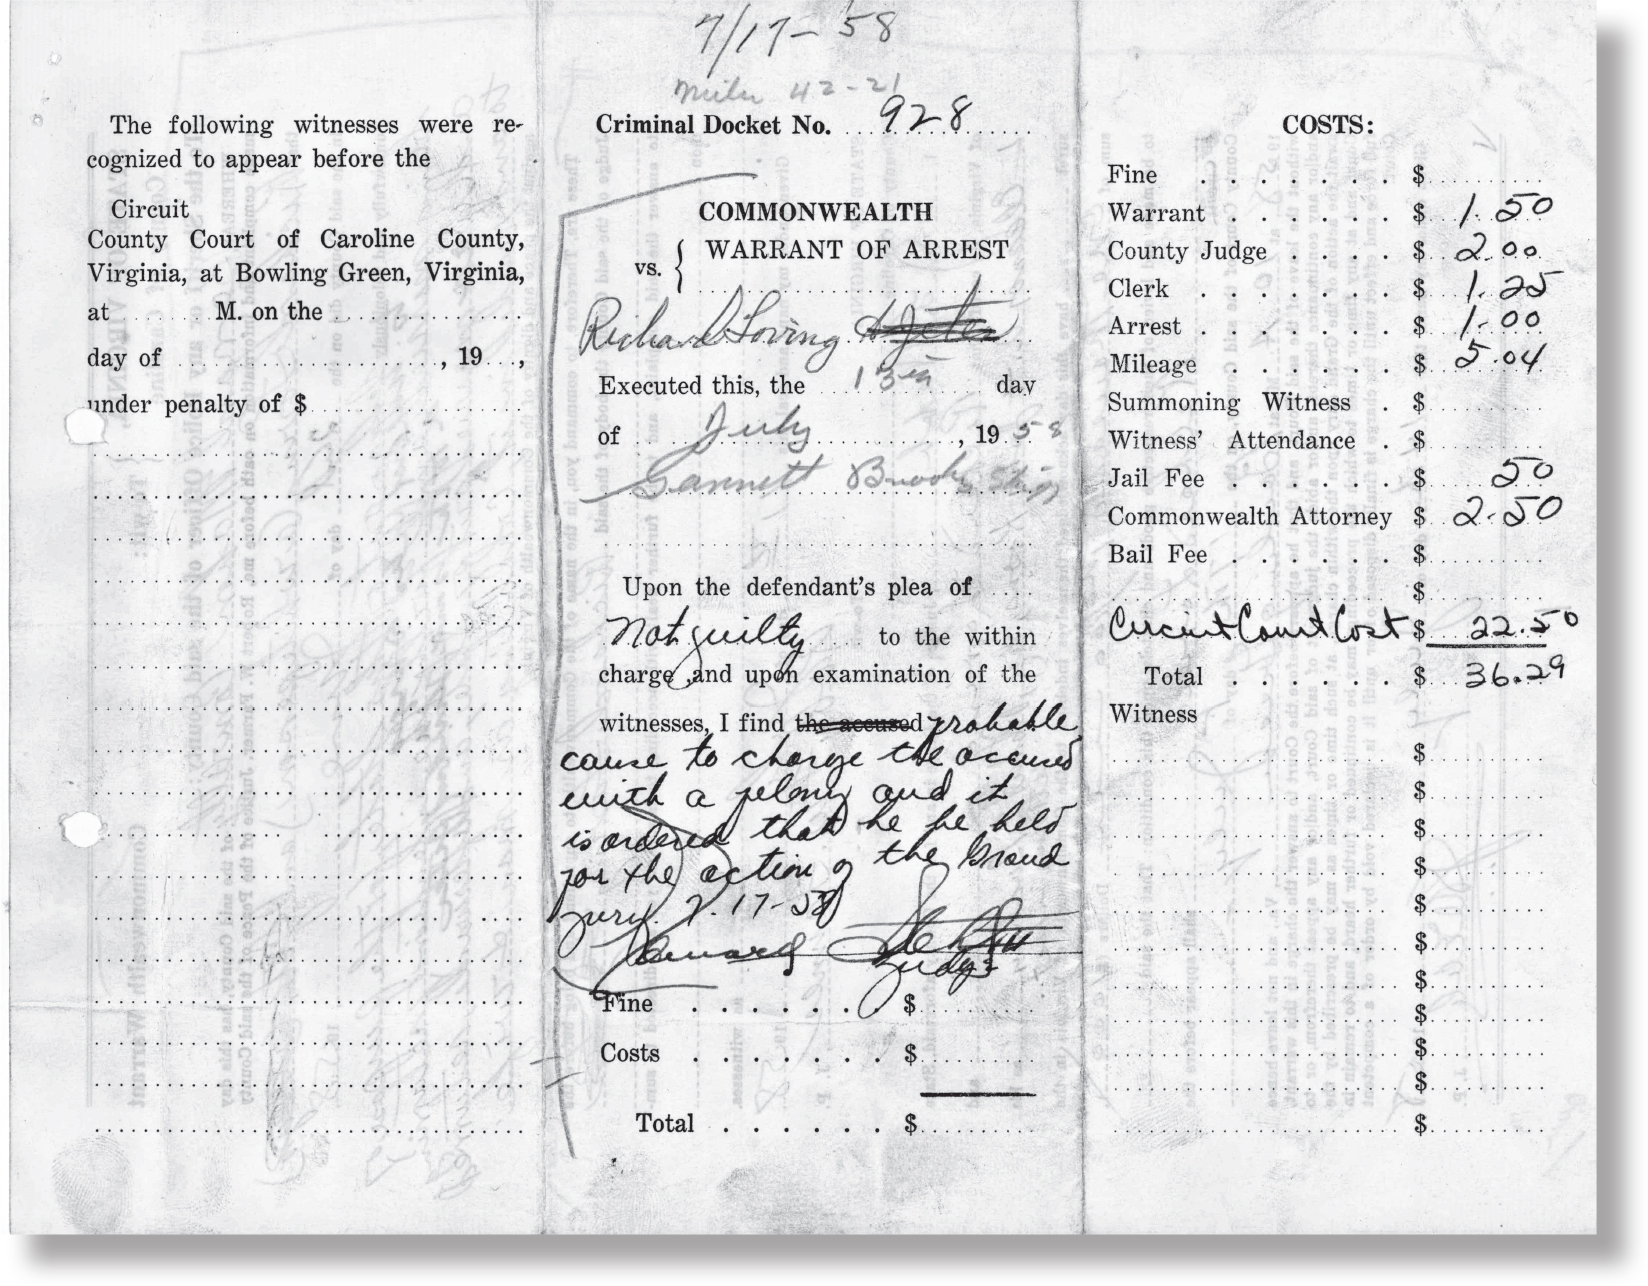 The following witnesses were re-
cognized to appear before the
Circuit
County Court of Caroline County,
Virginia, at Bowling Green, Virginia,
at ............ M. on the ....................
day of ............................, 19....,
under penalty of $ ........................
7/17-58
42-21
Criminal Docket No. 928
COMMONWEALTH
vs. { WARRANT OF ARREST
Richard Loving
Executed this, the 13th day
of July, 1958
Garnett Brooks
Upon the defendant's plea of
Not guilty to the within
charge, and upon examination of the
witnesses, I find the accused probable
cause to charge the accused
with a felony and it
is ordered that he be held
for the action of the Grand
Jury. 7-17-58
Edward
Judge
Fine . . . . . . $
Costs . . . . . . $
Total . . . . . . $
COSTS:
Fine . . . . . . $
Warrant . . . . . $ 1.50
County Judge . . . . $ 2.00
Clerk . . . . . . $ 1.25
Arrest . . . . . . $ 1.00
Mileage . . . . . . $ 5.04
Summoning Witness . $
Witness' Attendance . $
Jail Fee . . . . . . $ 50
Commonwealth Attorney $ 2.50
Bail Fee . . . . . $
$
Circuit Court Cost $ 22.50
Total . . . . . . $ 36.29
Witness
$
$
$
$
$
$
$
$
$
$
$